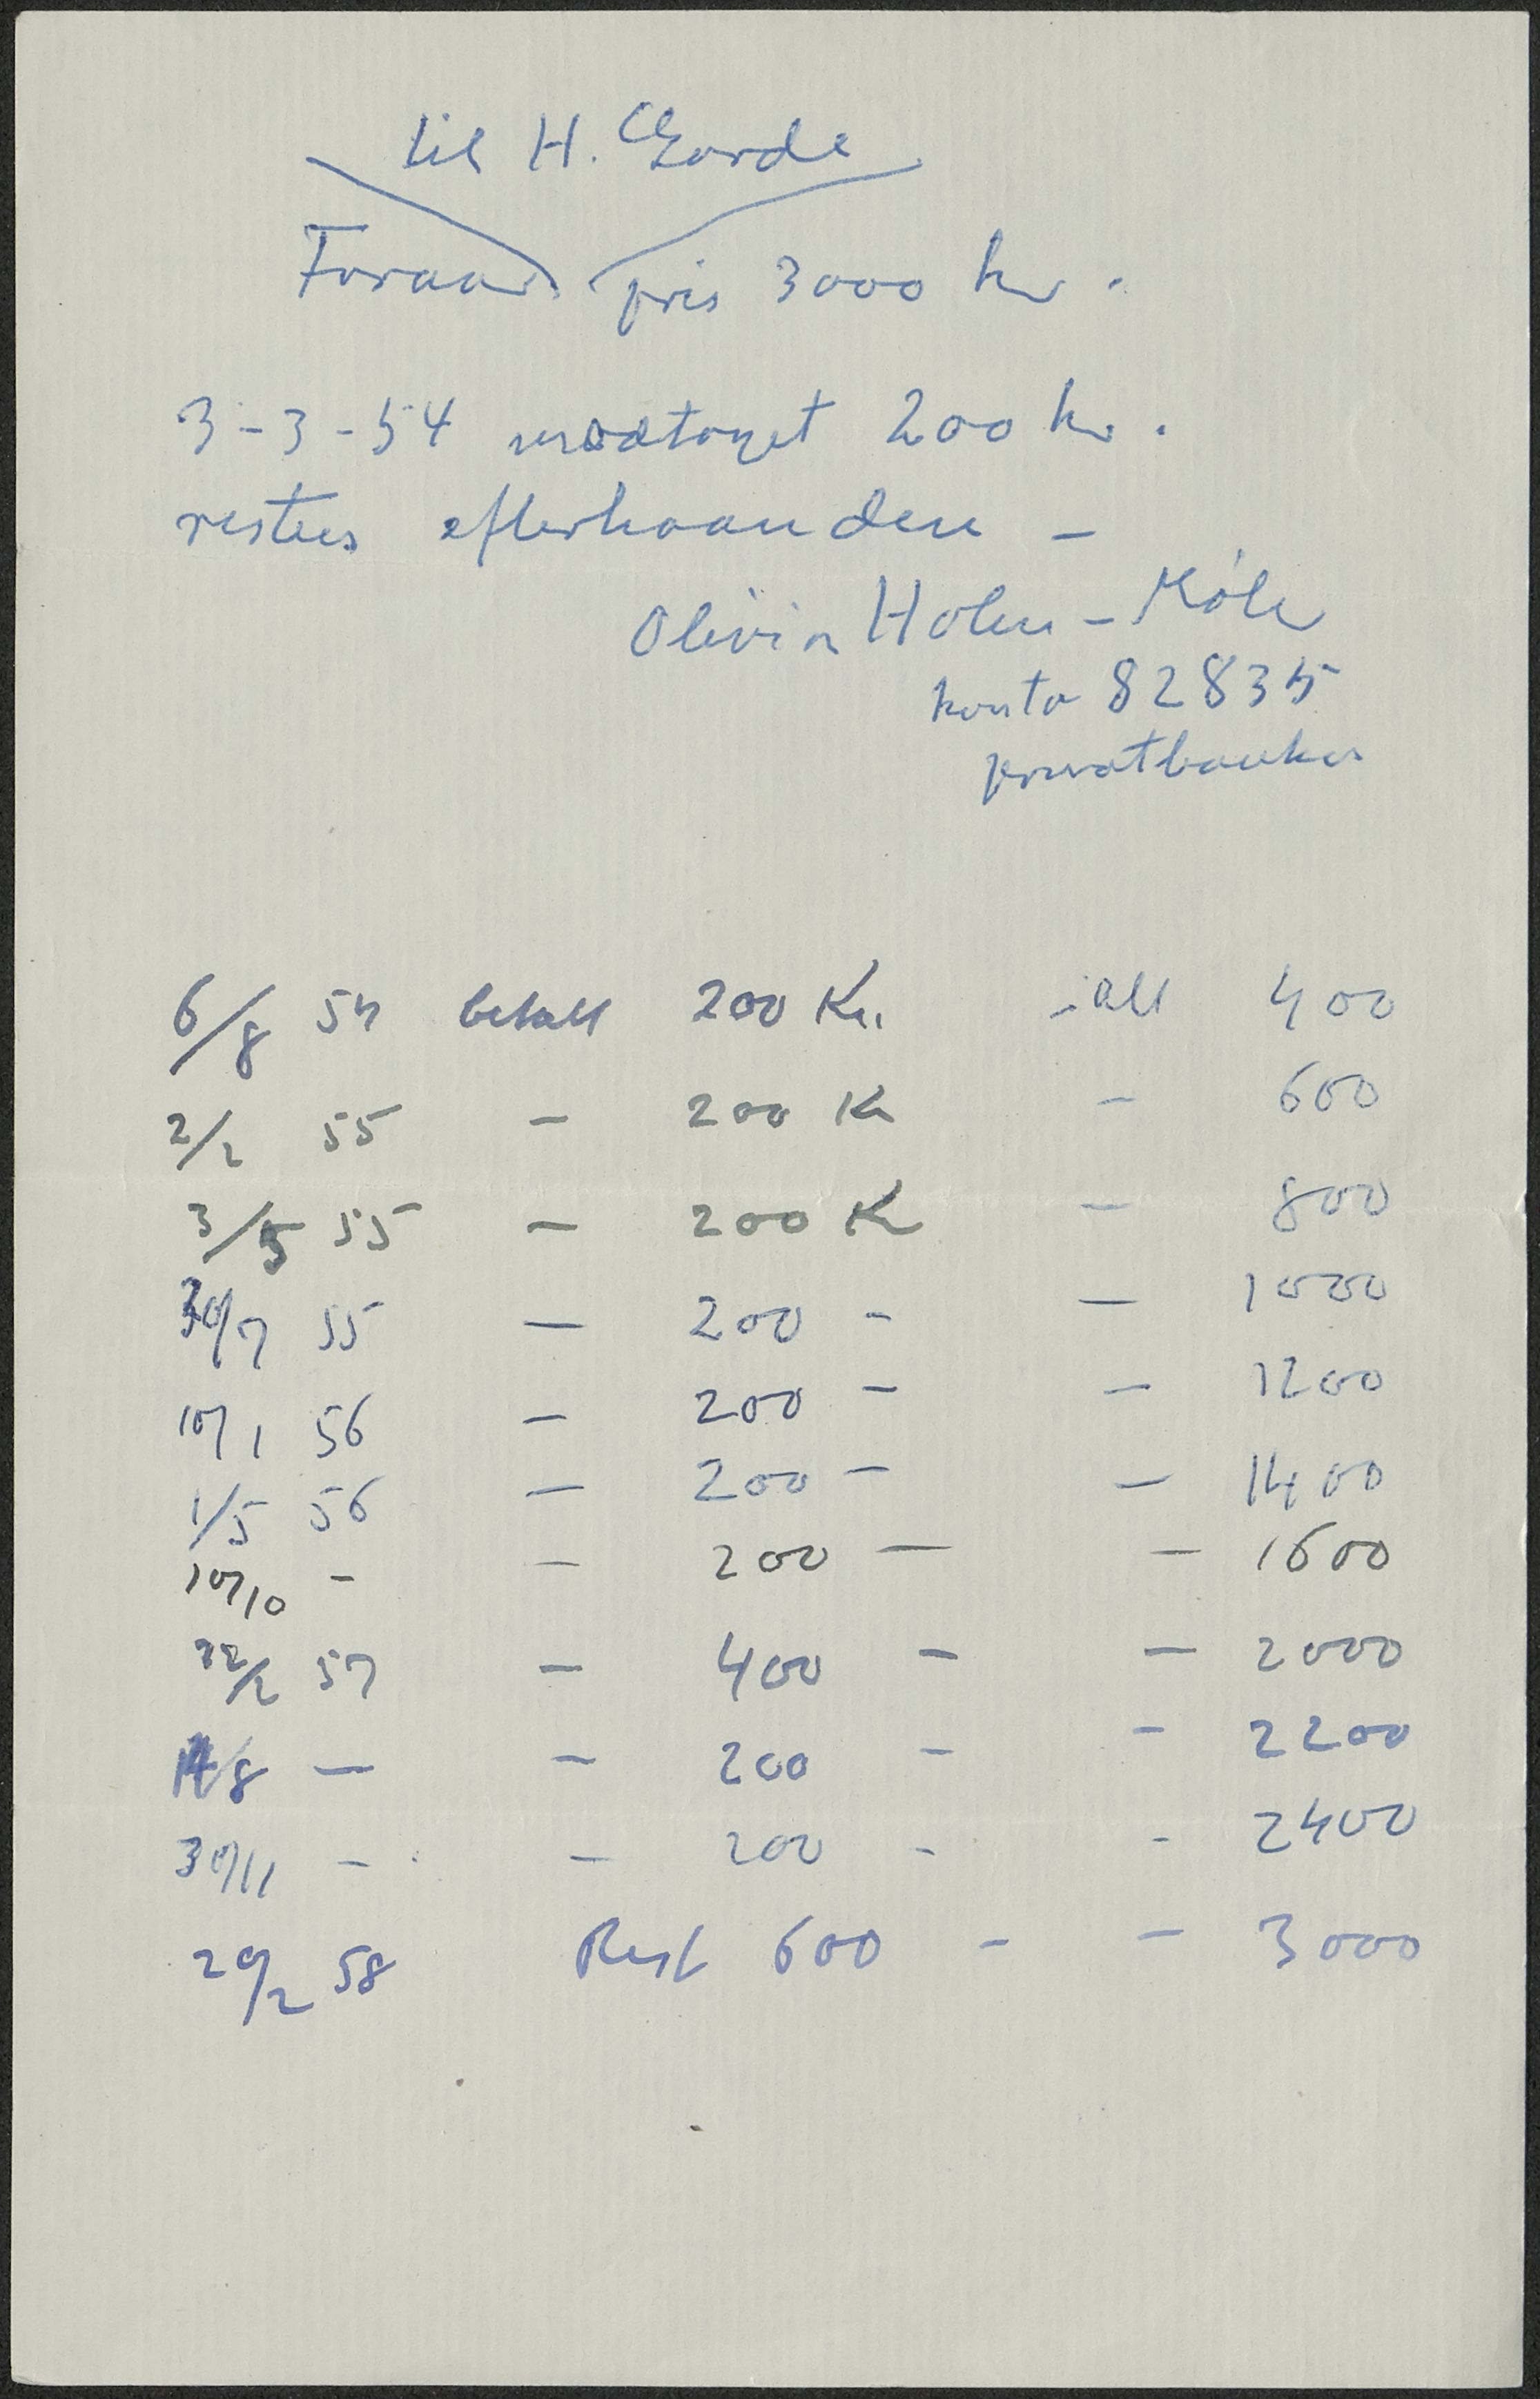 til H. Garde
Foraar pris 3000 kr.
3-3-54 modtaget 200 kr.
restes efterhaanden -
Olivia Holm-Møller
konto 82835
privatbanken
6/8 54 betalt 200 Kr. ialt 400
2/2 55 - 200 Kr - 600
3/5 55 - 200 Kr - 800
30/7 55 - 200 - - 1000
10/1 56 - 200 - - 1200
1/5 56 - 200 - - 1400
10/10 - - 200 - - 1600
22/2 57 - 400 - - 2000
14/8 - - 200 - - 2200
30/11 - - 200 - - 2400
20/2 58 Rest 600 - - 3000